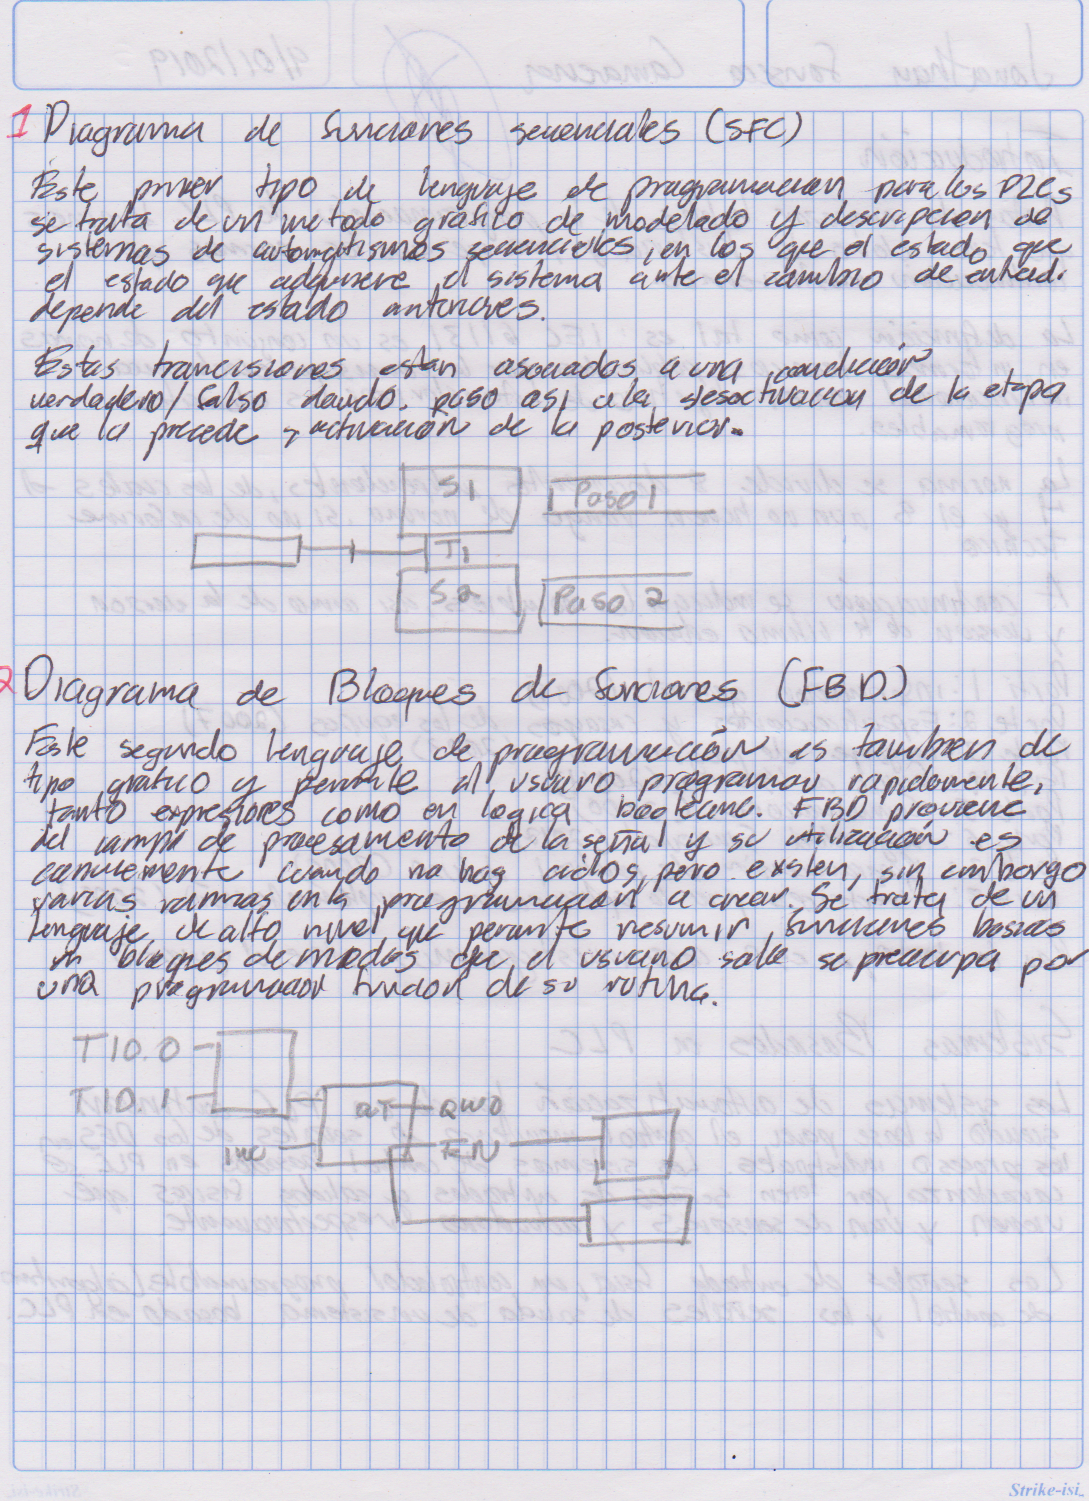 1 Diagrama de funciones secuenciales (SFC)
Este primer tipo de lenguaje de programacion para los PLCs
se trata de un metodo grafico de modelado y descripcion de
sistemas de automatismos secuenciales, en los que el estado que
el estado que adquiere el sistema ante el cambio de entrad.
depende del estado anteriores.
Estas trancisiones estan asociados a una condición
verdadero/falso dando paso asi a la desactivacion de la etapa
que la precede y activación de la posterior.
S1 Paso 1
T1
S2 Paso 2
2 Diagrama de Bloques de funciones (FBD)
Este segundo lenguaje de programación es tambien de
tipo grafico y permite al usuaro programar rapidamente,
tanto expresiones como en logica booleana. FBD proviene
del campo de procesamento de la señal y su utilización es
conviemente cuando no hay ciclos, pero existen, sin embargo
varias ramas en la programación a crear. Se trata de un
lenguaje de alto nivel que permite resumir funciones basicas
en bloques de modos que el usuario solo se preocupa por
una programacion funcion de su rutina.
T10.0
T10.1
QT QW0
EN
Strike-isi